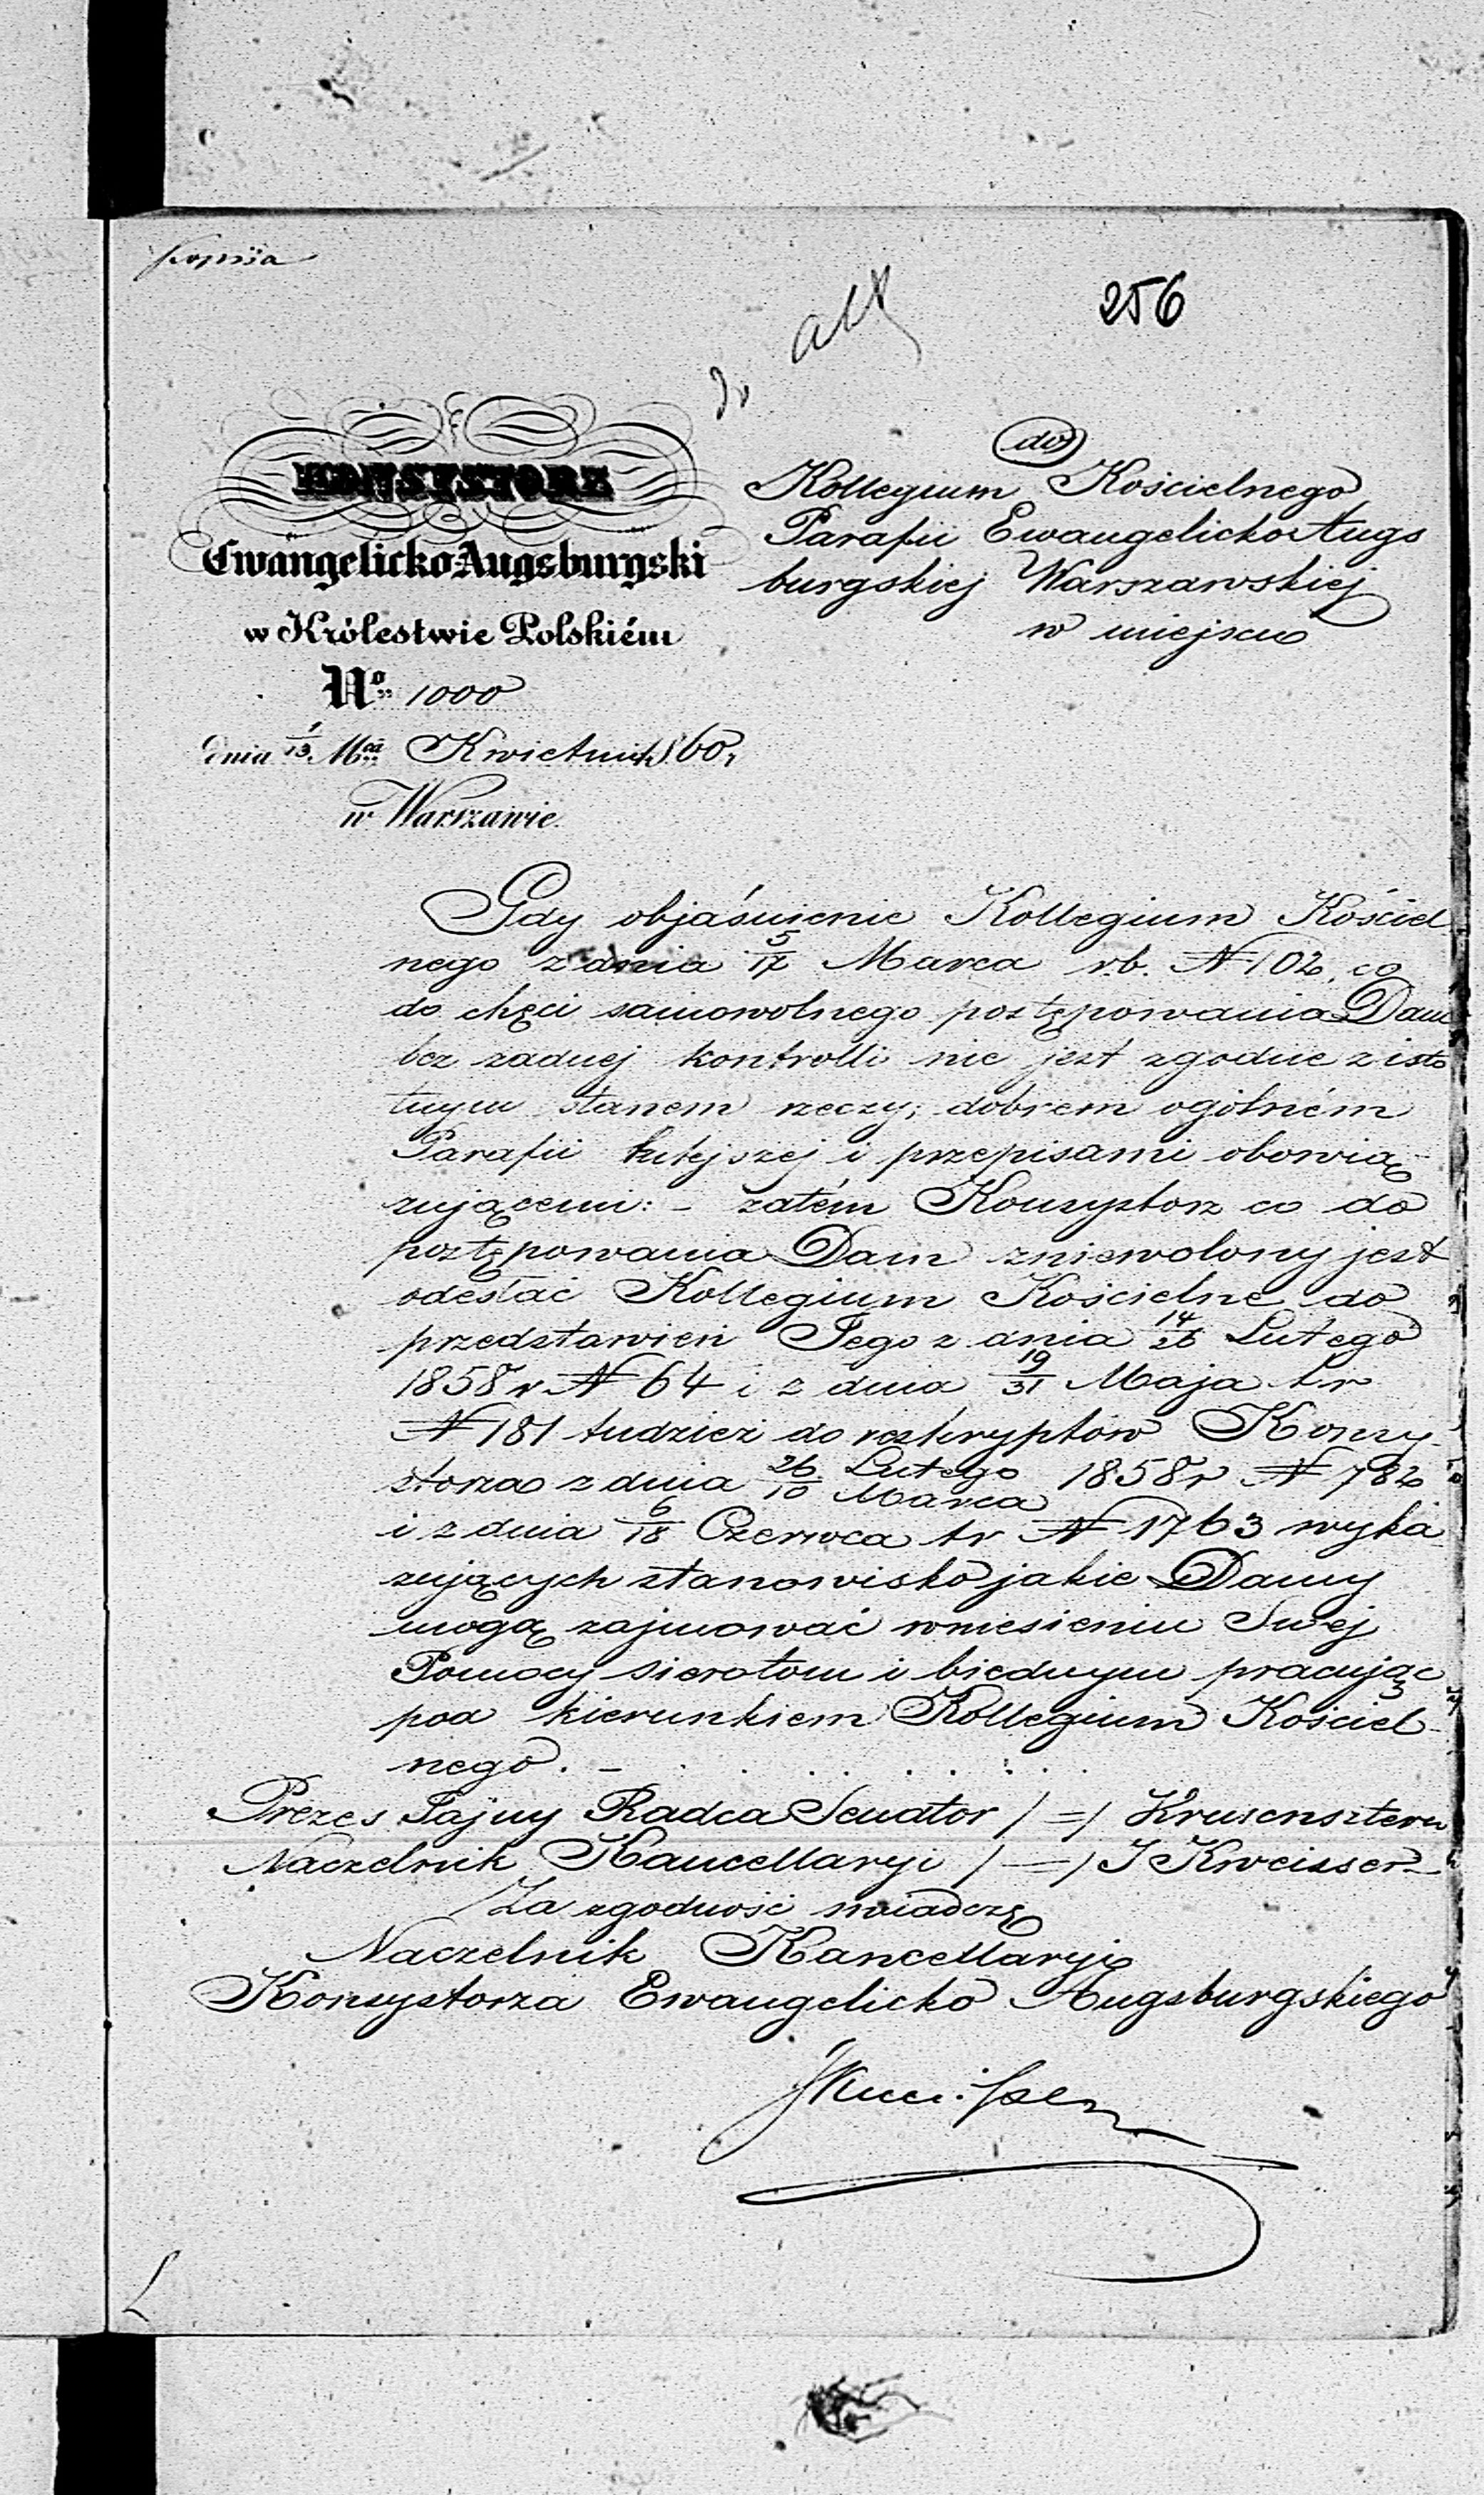 kopiia
256
do akt
KONSYSTORZ
Ewangelicko-Augsburgski
w Królestwie Polskiém
No 1000
dnia 1/13 Mca Kwietnia 1860 r
w Warszawie.
do
Kollegium Kościelnego
Parafii Ewangelicko Augs
burgskiej Warszawskiej
w miejscu
Gdy objaśnienie Kollegium Kościel
nego z dnia 5/17 Marca r.b. N 102, co
do chęci samowolnego postępowania Dam
bez żadnej kontrolli nie jest zgodne z isto
tnym stanem rzeczy, dobrem ogólném
Parafii tutejszej i przepisami obowią
zującemi: - zatém Konsystorz co do
postępowania Dam zniewolony jest
odesłać Kollegium Kościelne do
przedstawień Jego z dnia 14/26 Lutego
1858 r N 64 i z dnia 19/31 Maja t r
N 181 tudzież do reskryptów Konsy-
storza z dnia 26 Lutego/10 Marca 1858 r N 782
i z dnia 6/18 Czerwca t r N 1763 wyka
zujących stanowisko jakie Damy
mogą zajmować w niesieniu Swej
Pomocy sierotom i biednym pracując
pod kierunkiem Kollegium Kościel-
nego. -
Prezes Tajny Radca Senator /=/ Krusensztern
Naczelnik Kancellaryi /-=/ J Kweisser
Za zgodność świadczę
Naczelnik Kancellaryi
Konsystorza Ewangelicko Augsburgskiego